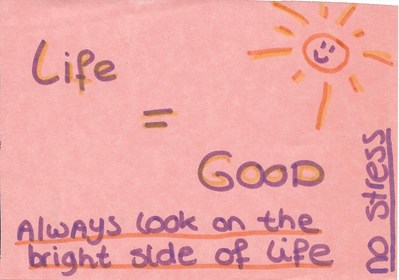 Life
=
GOOD
Always look on the
bright side of life
no stress